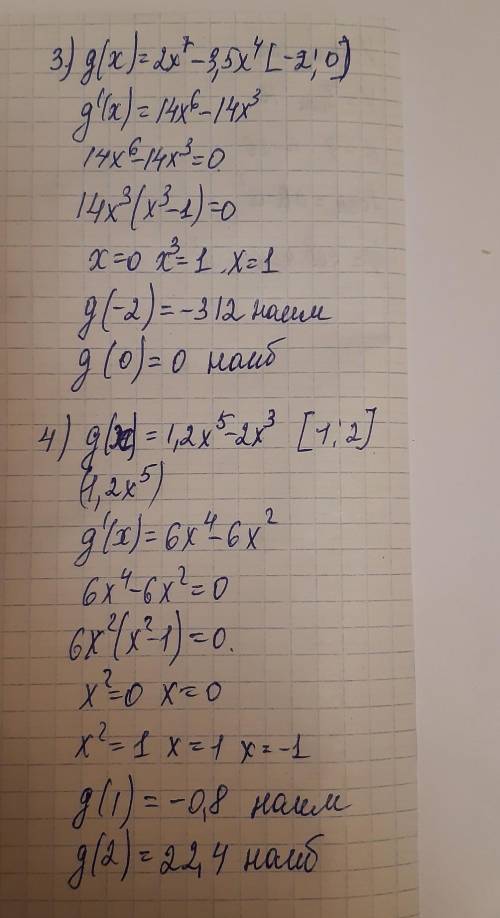 3.) g(x)=2x⁷-3,5x⁴ [-2; 0]
g'(x)=14x⁶-14x³
14x⁶-14x³=0
14x³(x³-1)=0
x=0 x³=1 x=1
g(-2)=-312 наим
g(0)=0 наиб
4) g(x)=1,2x⁵-2x³ [1; 2]
(1,2x⁵)
g'(x)=6x⁴-6x²
6x⁴-6x²=0
6x²(x²-1)=0.
x²=0 x=0
x²=1 x=1 x=-1
g(1)=-0,8 наим
g(2)=22,4 наиб